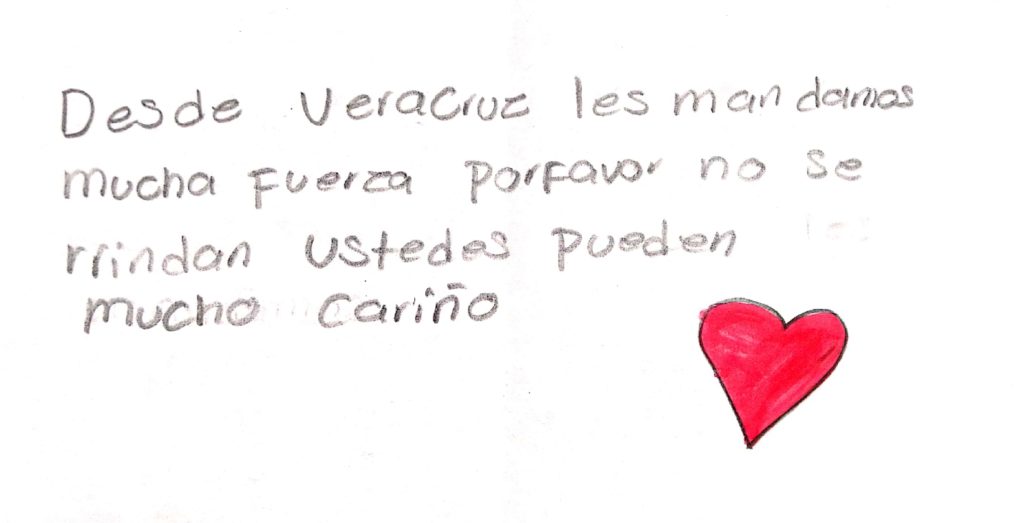 Desde Veracruz les mandamos
mucha fuerza porfavor no se
rrindan ustedes pueden
mucho cariño